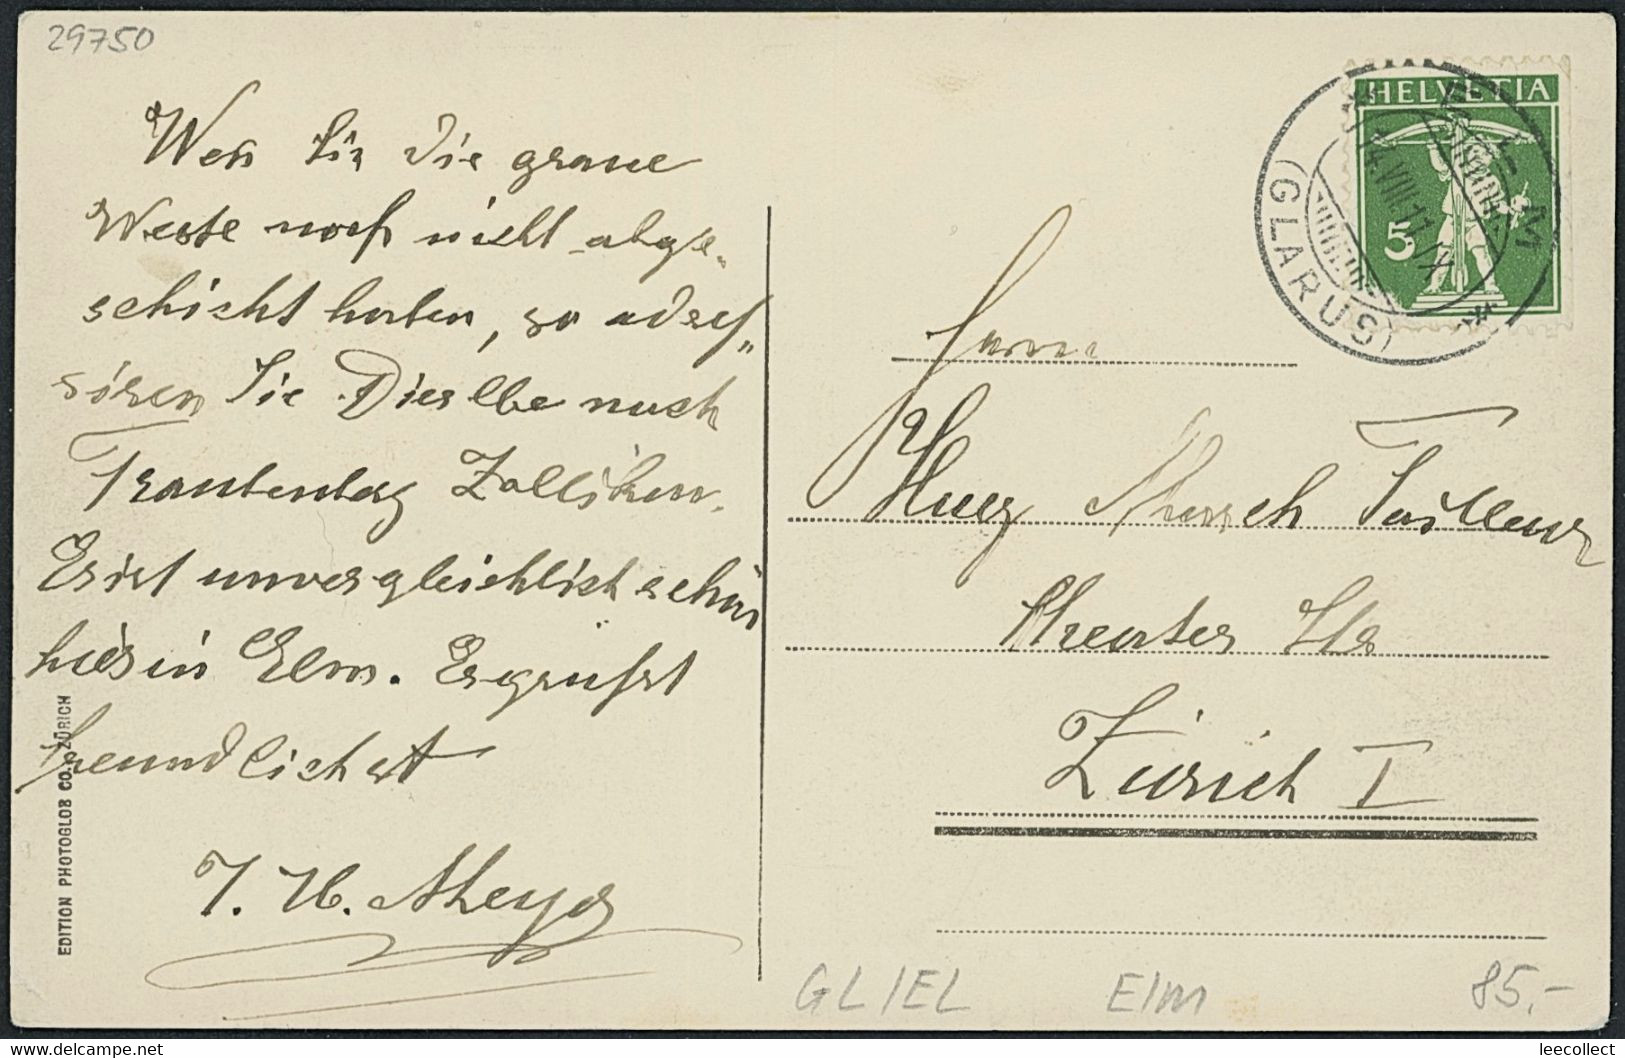 29750
Wen Sie die graue
Weste noch nicht abge-
schickt haben, so adres-
siren Sie Dieselbe nach
Traubenberg Zollikon.
Es ist unvergleichlich schön
hier in Elm. Es grüsst
freundlichst
J. H. Meyer
EDITION PHOTOGLOB CO. ZÜRICH
HELVETIA
5
ELM
14.VIII.11.IX
(GLARUS)
Herrn
Tailleur
Theater Str
Zürich I
GL/EL Elm 85.-
delcampe.net
leecollect